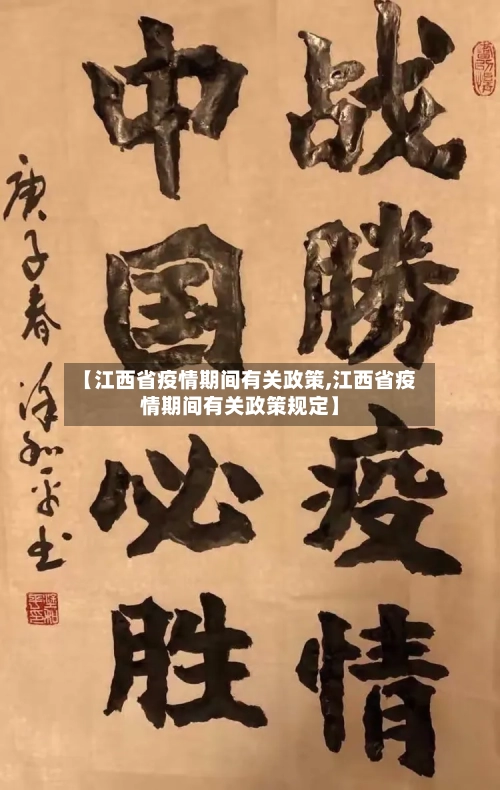 战勝疫情
中国必胜
庚子春涂和平书
【江西省疫情期间有关政策,江西省疫
情期间有关政策规定】